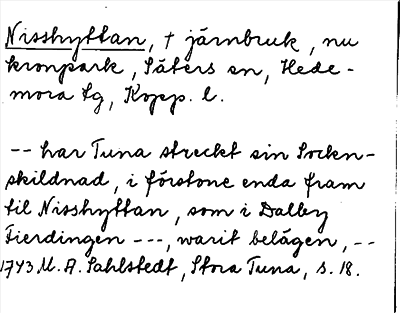 Nisshyttan, † järnbruk, nu
kronpark, Säters sn, Hede-
mora tg, Kopp. l.
-- har Tuna streckt sin Socken-
skildnad, i förstone enda fram
til Nisshyttan, som i Dalby
Fierdingen ---, warit belägen, --
1743 M. A. Sahlstedt, Stora Tuna, s. 18.